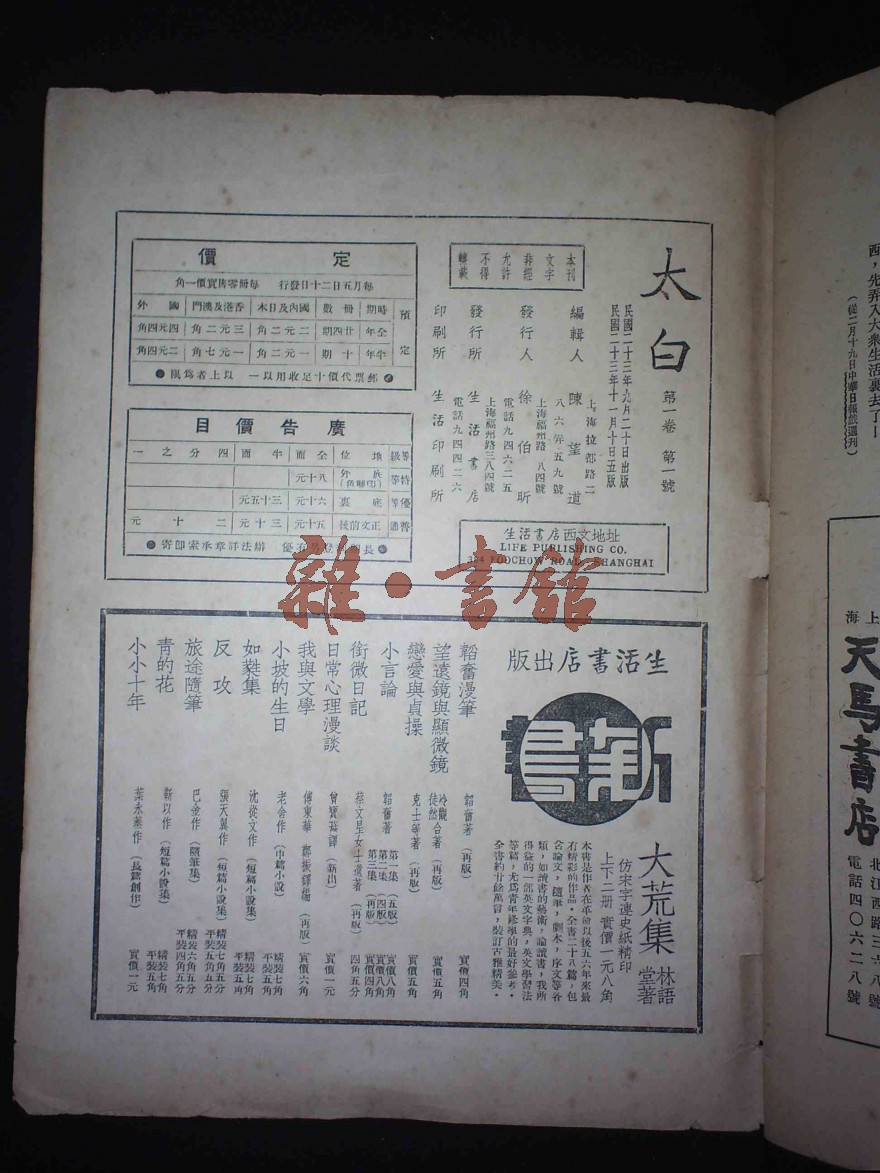 太白
第一卷 第一號
民國二十三年九月二十日出版
民國二十三年十一月十日五版
編輯人 陳望道
上海拉都路二
八六弄五九號
發行人 徐伯昕
上海福州路三八四號
電話九四六二五
發行所 生活書店
上海福州路三八四號
電話九四四二六
印刷所 生活印刷所
本刊
文字
非經
允許
不得
轉載
生活書店西文地址
LIFE PUBLISHING CO.
384 FOOCHOW ROAD, SHANGHAI
定價
每月五日二十日發行 每冊零售實價一角
預定
時期 冊數 國內及日本 香港及澳門 國外
全年 廿四期 二元二角 三元二角 四元四角
半年 十二期 一元二角 一元七角 二元四角
郵票代價十足收用以一 以上者爲限
廣告價目
等級 地位 全面 半面 四分之一
特等 八十元
優等 底裏 六十元 三十五元
普通 正文前後 五十元 三十元 二十元
雜·書館
生活書店出版
新書
大荒集 林語堂著
仿宋字連史紙精印
上下二冊 實價一元八角
本書是作者在革命以後五六年來最
有精彩的作品。全書二十八篇,包
含論文,隨筆,劇本,序文等各
類,如讀書的藝術,論讀書,我所
得益的一部英文字典,英文學習法
等篇,尤爲青年修學的最好參考。
全書約廿餘萬言,裝訂古雅精美。
韜奮漫筆 韜奮著(再版) 實價四角
望遠鏡與顯微鏡 冷觀 徒然合著(再版) 實價五角
戀愛與貞操 克士等著(再版) 實價五角
小言論 韜奮著 第一集(五版) 實價八角
第二集(四版) 實價八角
第三集(再版) 實價四角
街微日記 蔡文星女士遺著(再版) 四角五分
日常心理漫談 曾寶蓀譯(新出) 實價一元
我與文學 傅東華 鄭振鐸編(再版) 實價六角
小坡的生日 老舍作(中篇小說) 精裝七角
平裝五角
如蕤集 沈從文作(短篇小說集) 精裝七角
平裝五角
反攻 張天翼作(短篇小說集) 精裝七角五分
平裝五角五分
旅途隨筆 巴金作(隨筆集) 精裝六角五分
平裝四角五分
青的花 靳以作(短篇小說集) 精裝七角
平裝五角
小小十年 葉永蓁作(長篇創作) 實價一元
西,先弄入大衆生活裏去了—
(從二月十九日中華日報戲週刊)
上海
天馬書店
北江西路三六八號
電話四〇六二八號